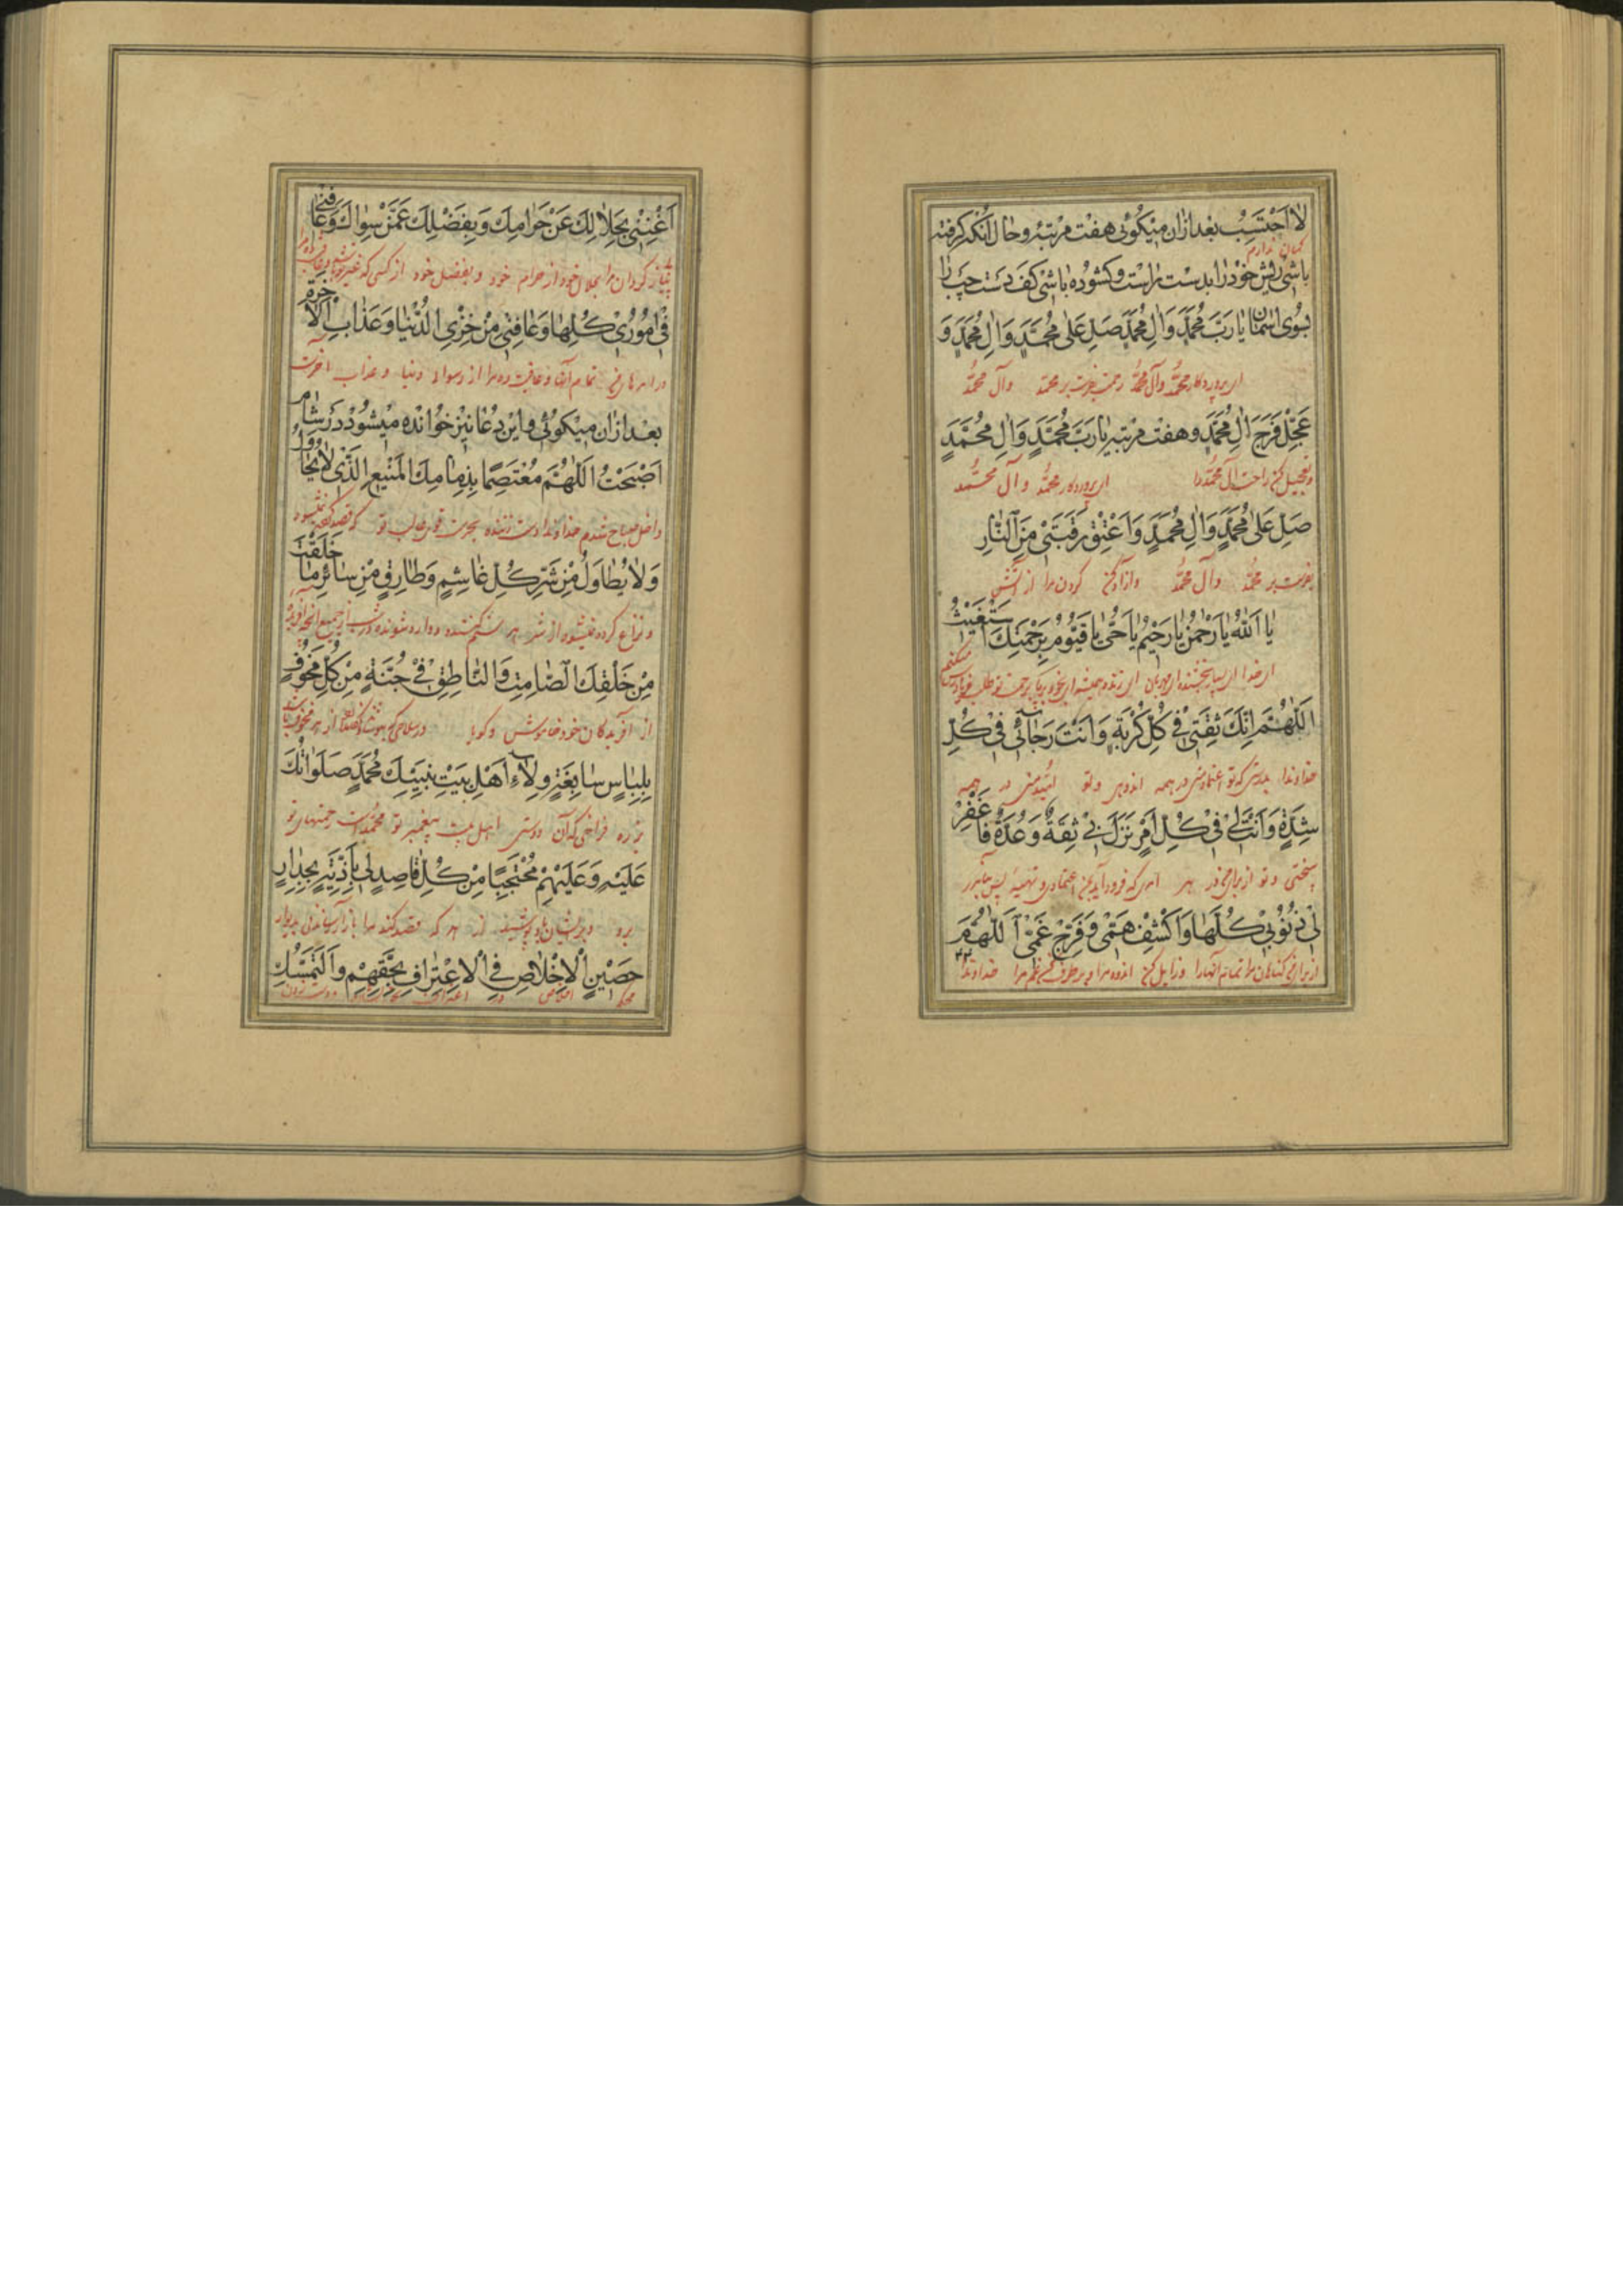 لا اَحْتَسِبُ بعد ازان میگوئی هفت مرتبه و حال آنکه گرفته
گمان ندارم
باشی ریش خود را بدست راست و گشوده باشی کف دست چپ را
بسوی اسمان یا رَبَّ مُحَمَّدٍ وَالِ مُحَمَّدٍ صَلِّ عَلی مُحَمَّدٍ وَالِ مُحَمَّدٍ وَ
ای پروردکار محمّد وآل محمّد رحمت بفرست بر محمّد وآل محمّد
عَجِّلْ فَرَجَ الِ مُحَمَّدٍ و هفت مرتبه یا رَبَّ مُحَمَّدٍ وَالِ مُحَمَّدٍ
و تعجیل کن راحت آل محمّد را ای پروردکار محمّد وآل محمّد
صَلِّ عَلی مُحَمَّدٍ وَالِ مُحَمَّدٍ وَاَعْتِقْ رَقَبَتی مِنَ النّارِ
بفرست بر محمّد وآل محمّد وازاد کن گردن مرا از آتش
یا اَللهُ یا رَحْمنُ یا رَحیمُ یا حَیُّ یا قَیُّومُ بِرَحْمَتِكَ اَسْتَغیثُ
ای خدا ای بخشنده ای مهربان ای زنده همیشه برحمت تو طلب فریادرسی میکنم
اَللّهُمَّ اِنَّكَ ثِقَتی فی كُلِّ كُرْبَةٍ وَاَنْتَ رَجآئی فی كُلِّ
خداوندا بدرستی که تو اعتماد منی در همه اندوهی و تو امید منی در همه
شِدَّةٍ وَاَنْتَ لی فی كُلِّ اَمْرٍ نَزَلَ بی ثِقَةٌ وَعُدَّةٌ فَاغْفِرْ
سختی و تو از برای من در هر امری که فرود آید بمن اعتمادی و تهیه پس بیامرز
لی ذُنُوبی كُلَّها وَاكْشِفْ هَمّی وَفَرِّجْ غَمّی اَللّهُمَّ
از برای من گناهان مرا تمام آنها را و زایل کن اندوه مرا و برطرف کن غم مرا خداوندا
اَغْنِنی بِحَلالِكَ عَنْ حَرامِكَ وَبِفَضْلِكَ عَمَّنْ سِواكَ وَعافِنی
بی نیاز گردان مرا بحلال خود از حرام خود و بفضل خود از کسی که غیر تو باشد و عافیت ده مرا
فی اُمُوری كُلِّها وَعافِنی مِنْ خِزْیِ الدُّنْیا وَعَذابِ الْاخِرَةِ
در امرهای من تمام آنها و عافیت ده مرا از رسوائی دنیا و عذاب آخرت
بعد ازان میگوئی و این دُعا نیز خوانده میشود در شام
اَصْبَحْتُ اَللّهُمَّ مُعْتَصِمًا بِذِمامِكَ الْمَنیعِ الَّذی لا یُحاوَلُ
داخل صباح شدم خداوندا دست زننده بحرمت تو که قصد کرده نمیشود
وَلا یُطاوَلُ مِنْ شَرِّ كُلِّ غاشِمٍ وَطارِقٍ مِنْ سائِرِ ما خَلَقْتَ
و نزاع کرده نمیشود از شر هر ستم کننده و وارد شونده در شب از جمیع آنچه آفریده
مِنْ خَلْقِكَ الصّامِتِ وَالنّاطِقِ فی جُنَّةٍ مِنْ كُلِّ مَخُوفٍ
از آفریدگان خود خاموش و گویا از هر مخوف
بِلِباسٍ سابِغَةٍ وِلآءِ اَهْلِ بَیْتِ نَبِیِّكَ مُحَمَّدٍ صَلَواتُكَ
بزره فراخی که آن دوستی اهل بیت پیغمبر تو محمّد است رحمتهای تو
عَلَیْهِ وَعَلَیْهِمْ مُحْتَجِبًا مِنْ كُلِّ قاصِدٍ لی بِاَذِیَّةٍ بِجِدارٍ
بر او و بر ایشان باد از هر که قصد کند مرا بازار رسانیدنی بدیوار
حَصینِ الْاِخْلاصِ فِی الْاِعْتِرافِ بِحَقِّهِمْ وَالتَّمَسُّكِ
محکم اخلاص در اعتراف